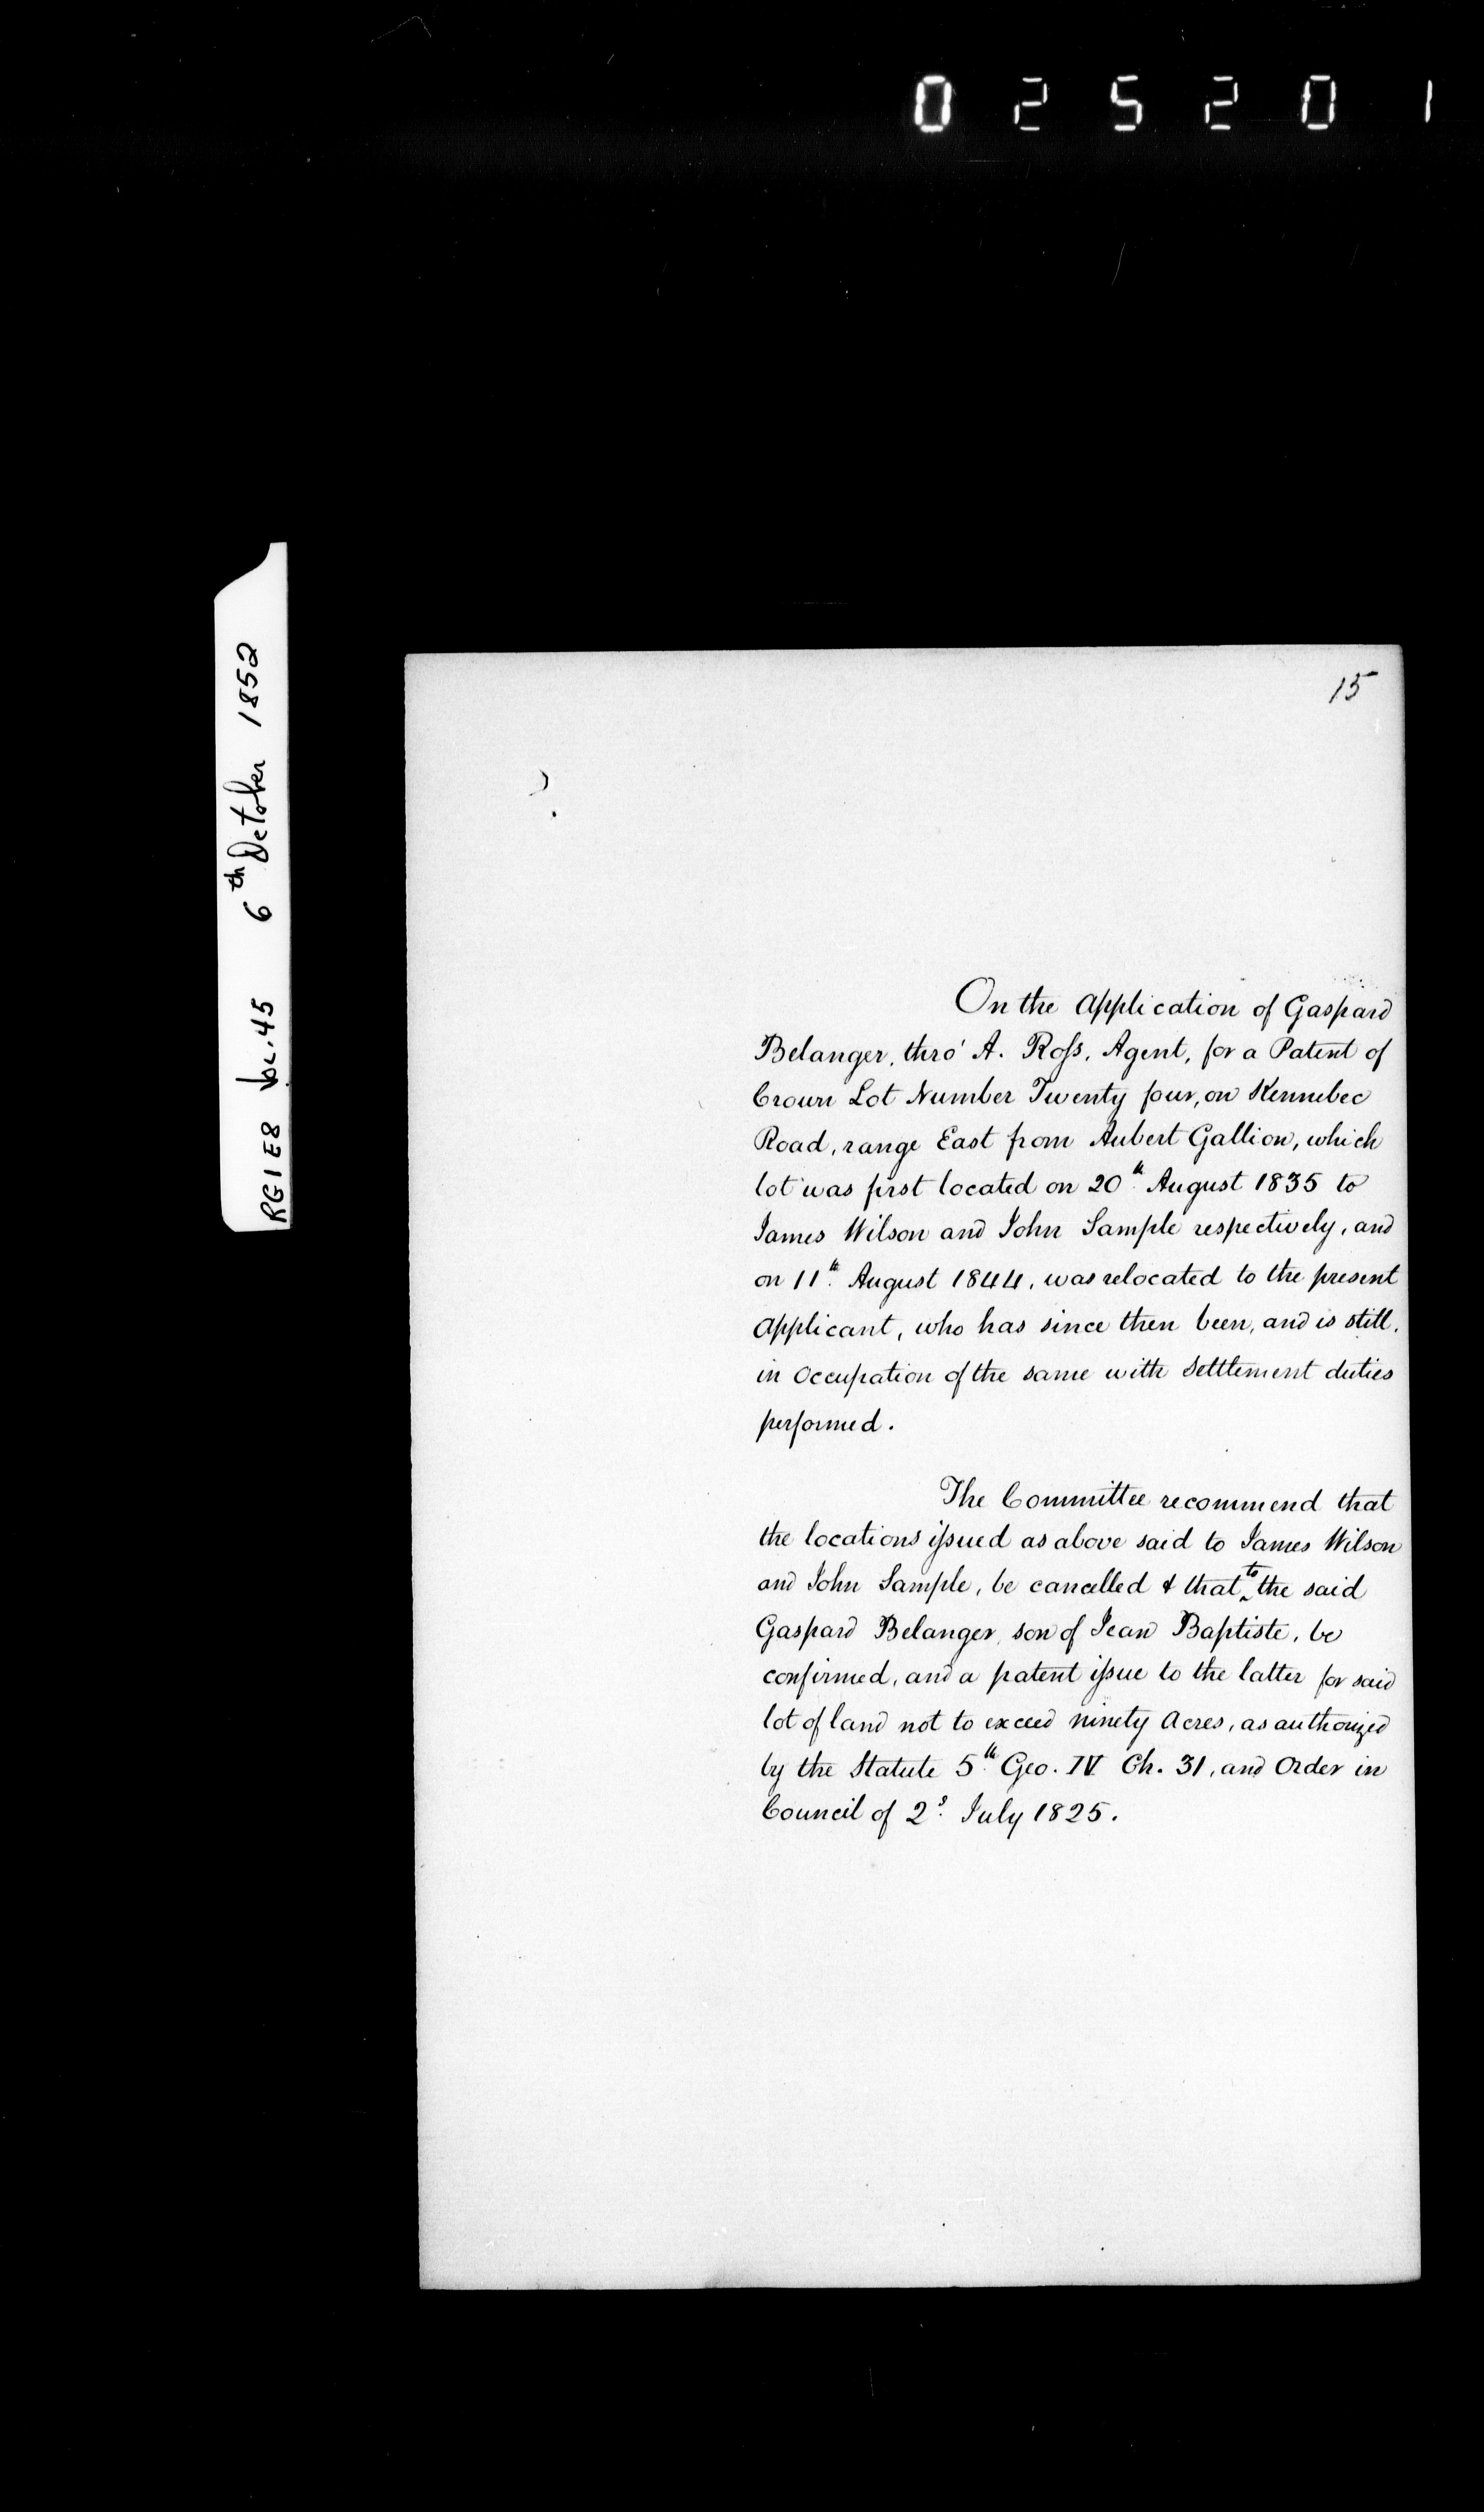 025201
RG1E8 Vol. 45 6th October 1852
15
On the Application of Gaspard
Belanger, thro' A. Ross, Agent, for a Patent of
Crown Lot Number Twenty four, on Kennebec
Road, range East from Aubert Gallion, which
lot was first located on 20th August 1835 to
James Wilson and John Sample respectively, and
on 11th August 1844, was relocated to the present
Applicant, who has since then been, and is still,
in Occupation of the same with Settlement duties
performed.
The Committee recommend that
the locations issued as above said to James Wilson
and John Sample, be cancelled & that to the said
Gaspard Belanger, son of Jean Baptiste, be
confirmed, and a patent issue to the latter for said
lot of land not to exceed ninety Acres, as authorized
by the Statute 5th Geo. IV Ch. 31, and Order in
Council of 2d July 1825.